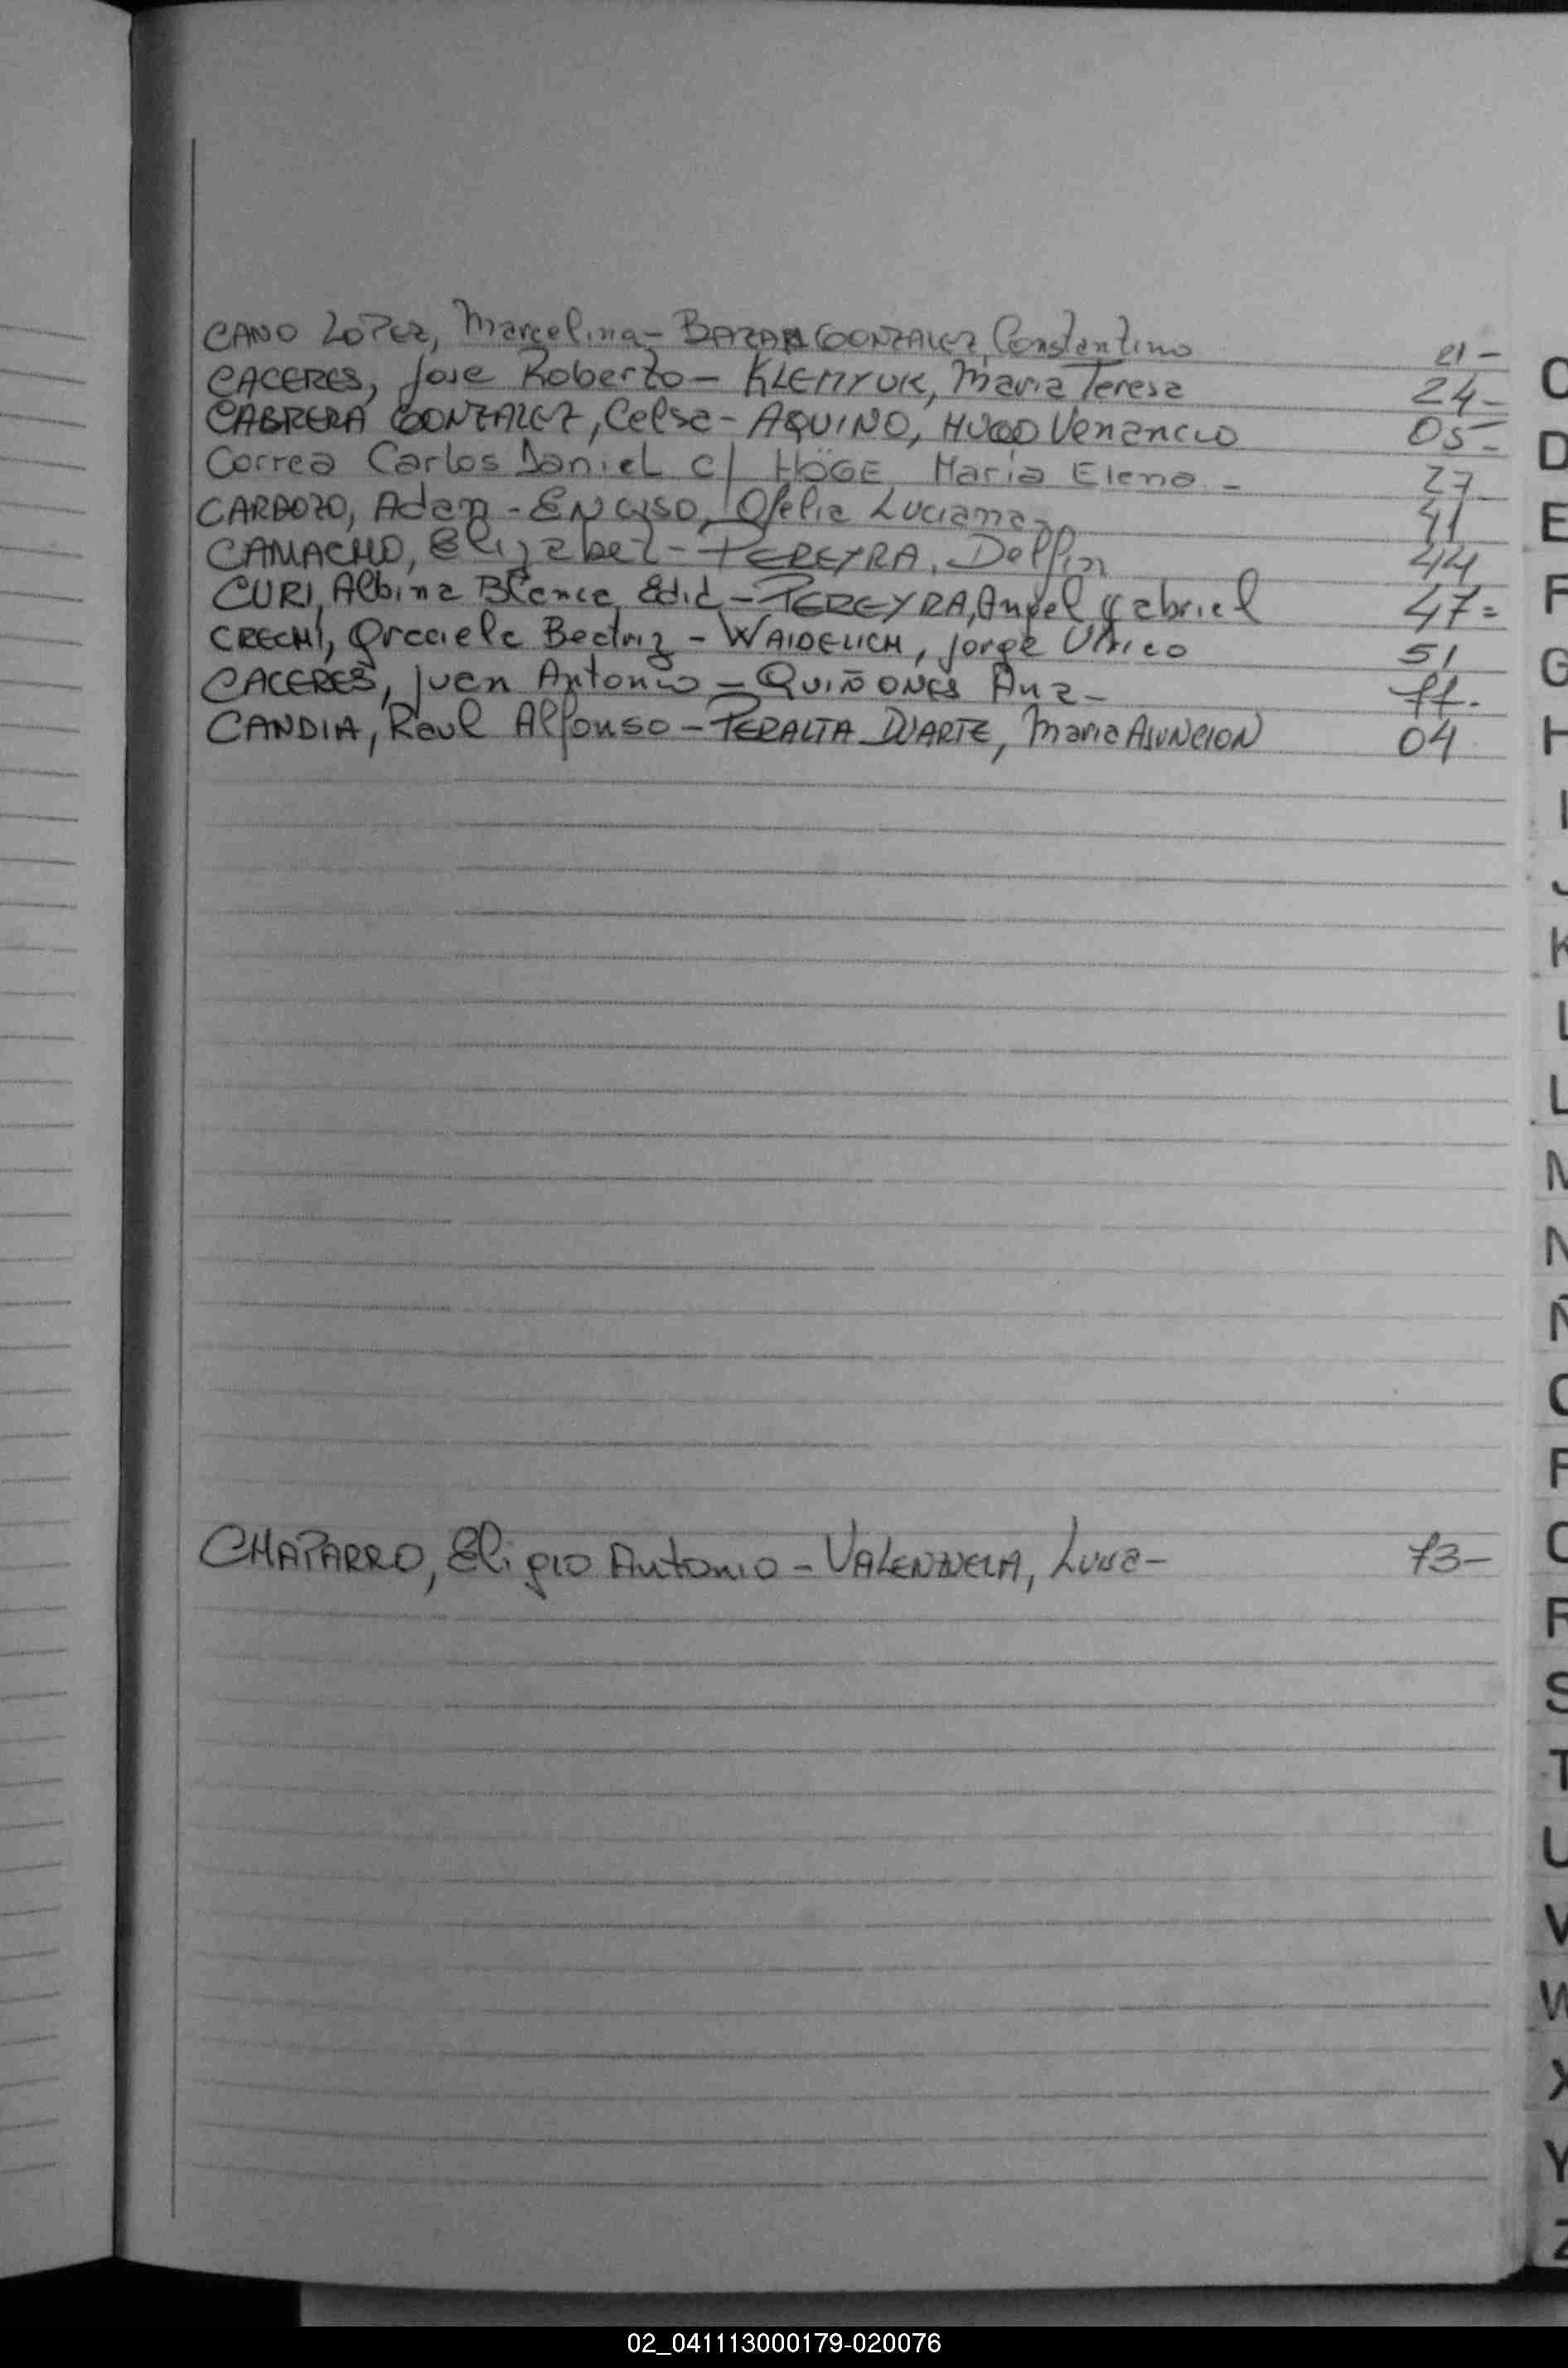 CANO LOPEZ, Marcelina - BAZAN GONZALEZ, Constantino 21 -
CACERES, Jose Roberto - KLEMYUK, Maria Teresa 24 -
CABRERA GONZALEZ, Celsa - AQUINO, HUGO Venancio 05 -
Correa Carlos Daniel c/ HÖGE Maria Elena - 27
CARDOZO, Adan - ENCISO, Ofelia Luciana - 41
CAMACHO, Elizabet - PEREYRA, Delfin 44
CURI, Albina Blanca Edid - PEREYRA, Angel Gabriel 47 =
CRECHI, Graciela Beatriz - WAIDELICH, Jorge Ulrico 51
CACERES, Juan Antonio - QUIÑONES Ana - 77 -
CANDIA, Raul Alfonso - PERALTA DUARTE, Maria ASUNCION 04
CHAPARRO, Eligio Antonio - VALENZUELA, Luisa - 73 -
C
D
E
F
G
H
I
J
K
L
L
M
N
Ñ
O
P
Q
R
S
T
U
V
W
X
Y
Z
02_041113000179-020076